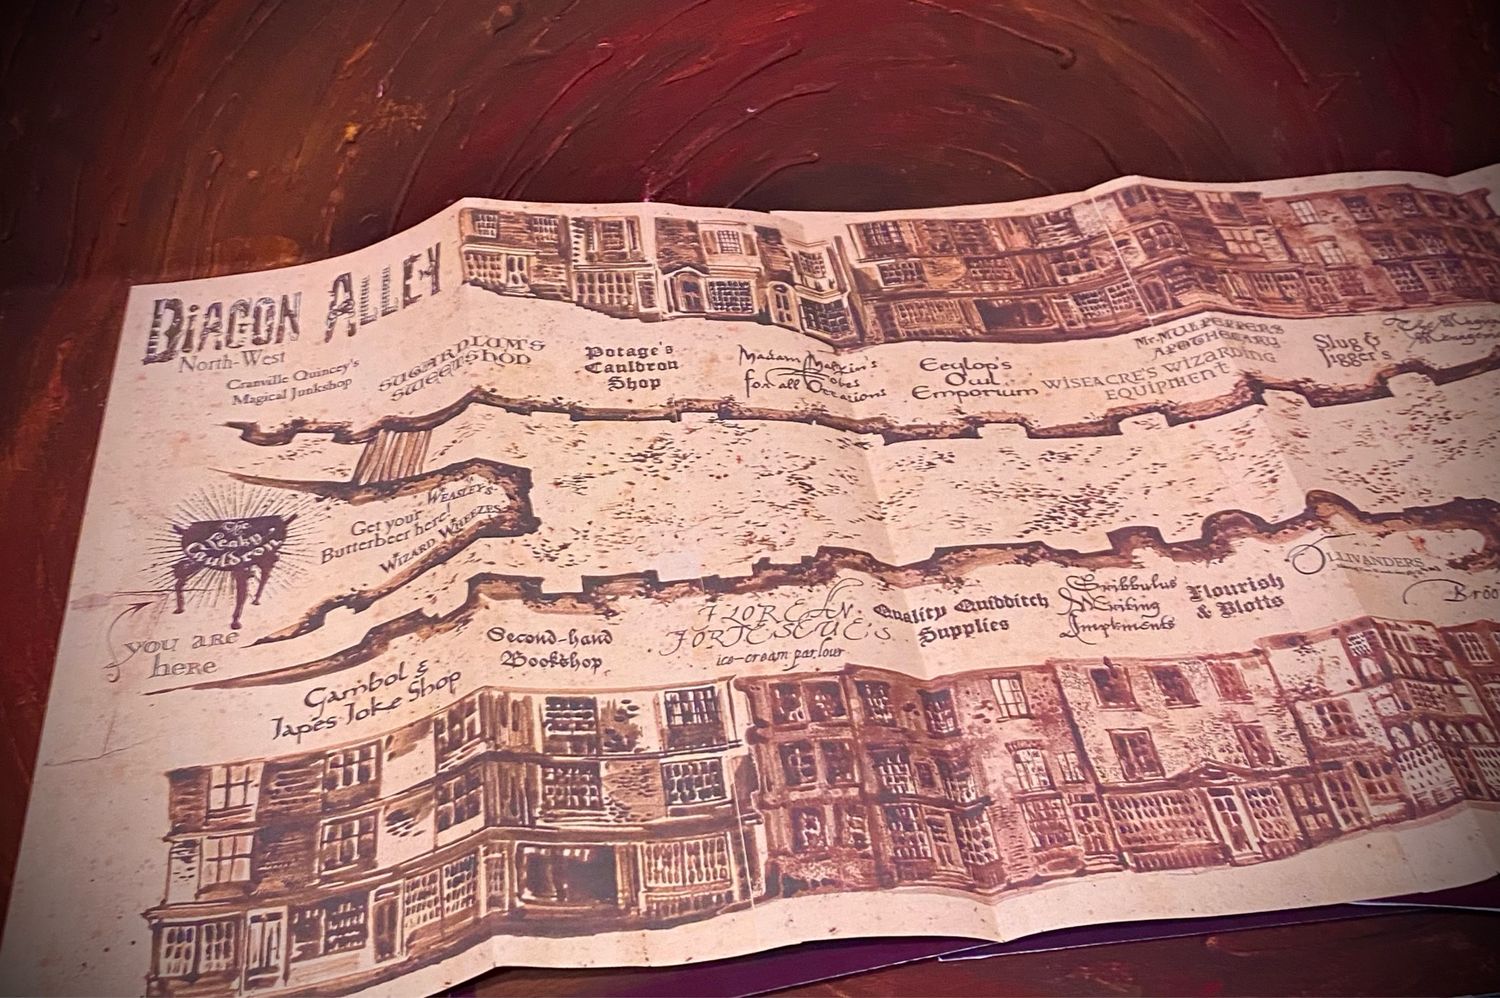 DIAGON ALLEY
North-West
Cranville Quincey's
Magical Junkshop
SUGARPLUM'S
SWEETSHOP
Potage's
Cauldron
Shop
Madam Malkin's
Robes
for all Occasions
Eeylop's
Owl
Emporium
Mr. MULPEPPERS
APOTHECARY
WISEACRE'S WIZARDING
EQUIPMENT
Slug &
Jigger's
The
The
Leaky
Cauldron
Get your
Butterbeer here!
WEASLEYS'
WIZARD WHEEZES
you are
here
Gambol &
Japes Joke Shop
Second-hand
Bookshop
FLOREAN
FORTESCUE'S
ice-cream parlour
Quality Quidditch
Supplies
Scribbulus
Writing
Implements
Flourish
& Blotts
OLLIVANDERS